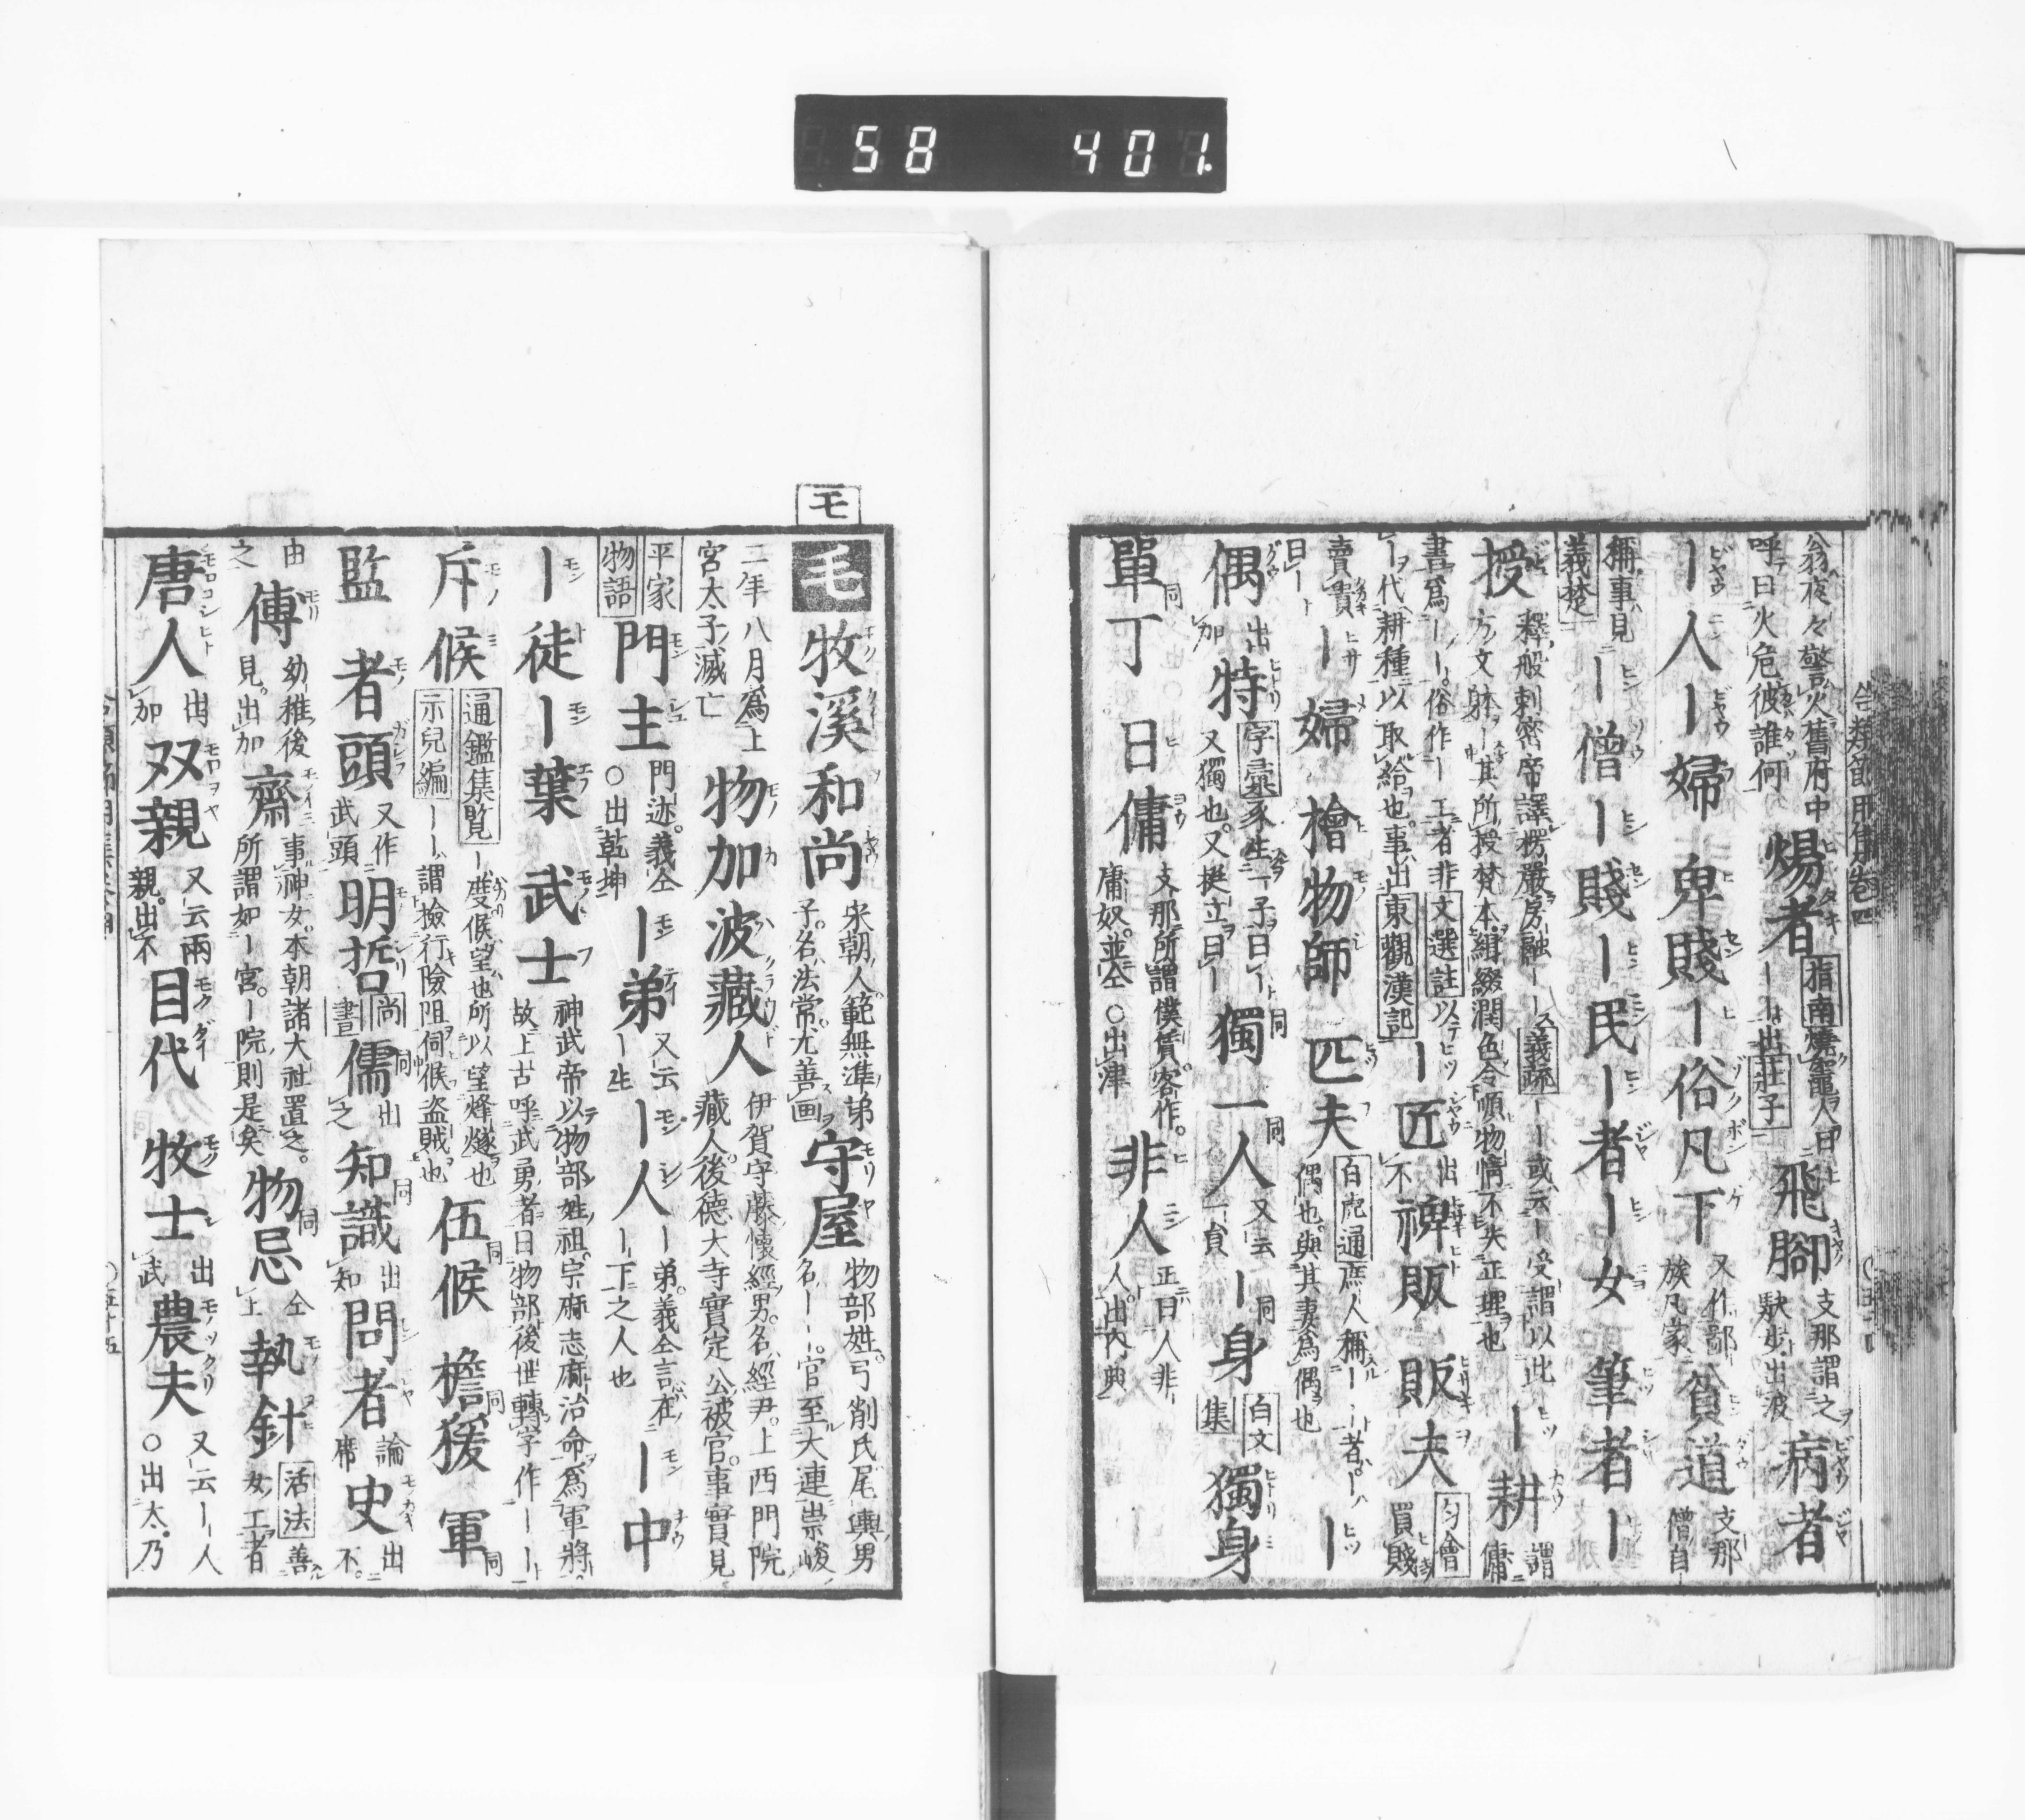 58 401
合類節用集巻四
翁夜々警火舊府中
呼曰火危彼誰何
煬者
指南燒竈人曰
ーー出莊子
飛脚
支那謂之
馱步出波
病者
ー人ー婦 卑賤ー俗凡下
又作鄙
族凡家
貧道
支那
僧自
稱事見
義楚
ー僧ー賤ー民ー者ー女 筆者ー
授
釋般剌密帝譯楞嚴房融ーー義疏ーー或云ー受謂以此
方文躰ー其所授梵本緝綴潤色令順物情不失正理也
ー耕
謂傭
書爲ーー俗作ー工者非文選註以
ー代耕種以取給也事出東觀漢記
ー匠
出
不
裨販 販夫
匀會
買賤
賣貴
曰ー
ー婦 檜物師 匹夫
白虎通庶人稱ーー者ー
偶也與其妻爲偶也
ー
偶
出
加
特
字彙豕生一子曰ー
又獨也又挺立曰ー
獨 一人
又云
一身
ー身
白文
集
獨身
單丁 日傭
支那所謂僕賃客作
庸奴並仝〇出津
非人
正曰人非
人出內典
モ
毛
牧溪和尚
宋朝人範無準弟
子名法常尤善画
守屋
物部姓弓削氏尾輿男
名ーー官至大連崇峻
二年八月爲上
宮太子滅亡
物加波藏人
伊賀守藤懷經男名經尹上西門院
藏人後德大寺實定公被官事實見
平家
物語
門主
門迹義仝
〇出乾坤
ー弟
又云
ー生
ー人
ー弟義仝言在
ー下之人也
ー中
ー徒ー葉 武士
神武帝以物部姓祖宗麻志麻治命爲軍將
故上古呼武勇者曰物部後世轉字作ーー
斥候
通鑑集覧ー度候望也所以望烽燧也
示兒編ーー謂撿行險阻伺候盜賊也
伍候 檐猨 軍
監 者頭
又作
武頭
明哲
尚
書
儒
出
之
知識
出
知
問者
論
席
史
出
不
由
之
傅
幼稚後
見出加
齋
事神女本朝諸大社置之
所謂如ー宮ー院則是矣
物忌
仝
上
執針
活法善
女工者
唐人
出
加
双親
又云兩
親出不
目代 牧士
出
武
農夫
又云ー人
〇出太乃